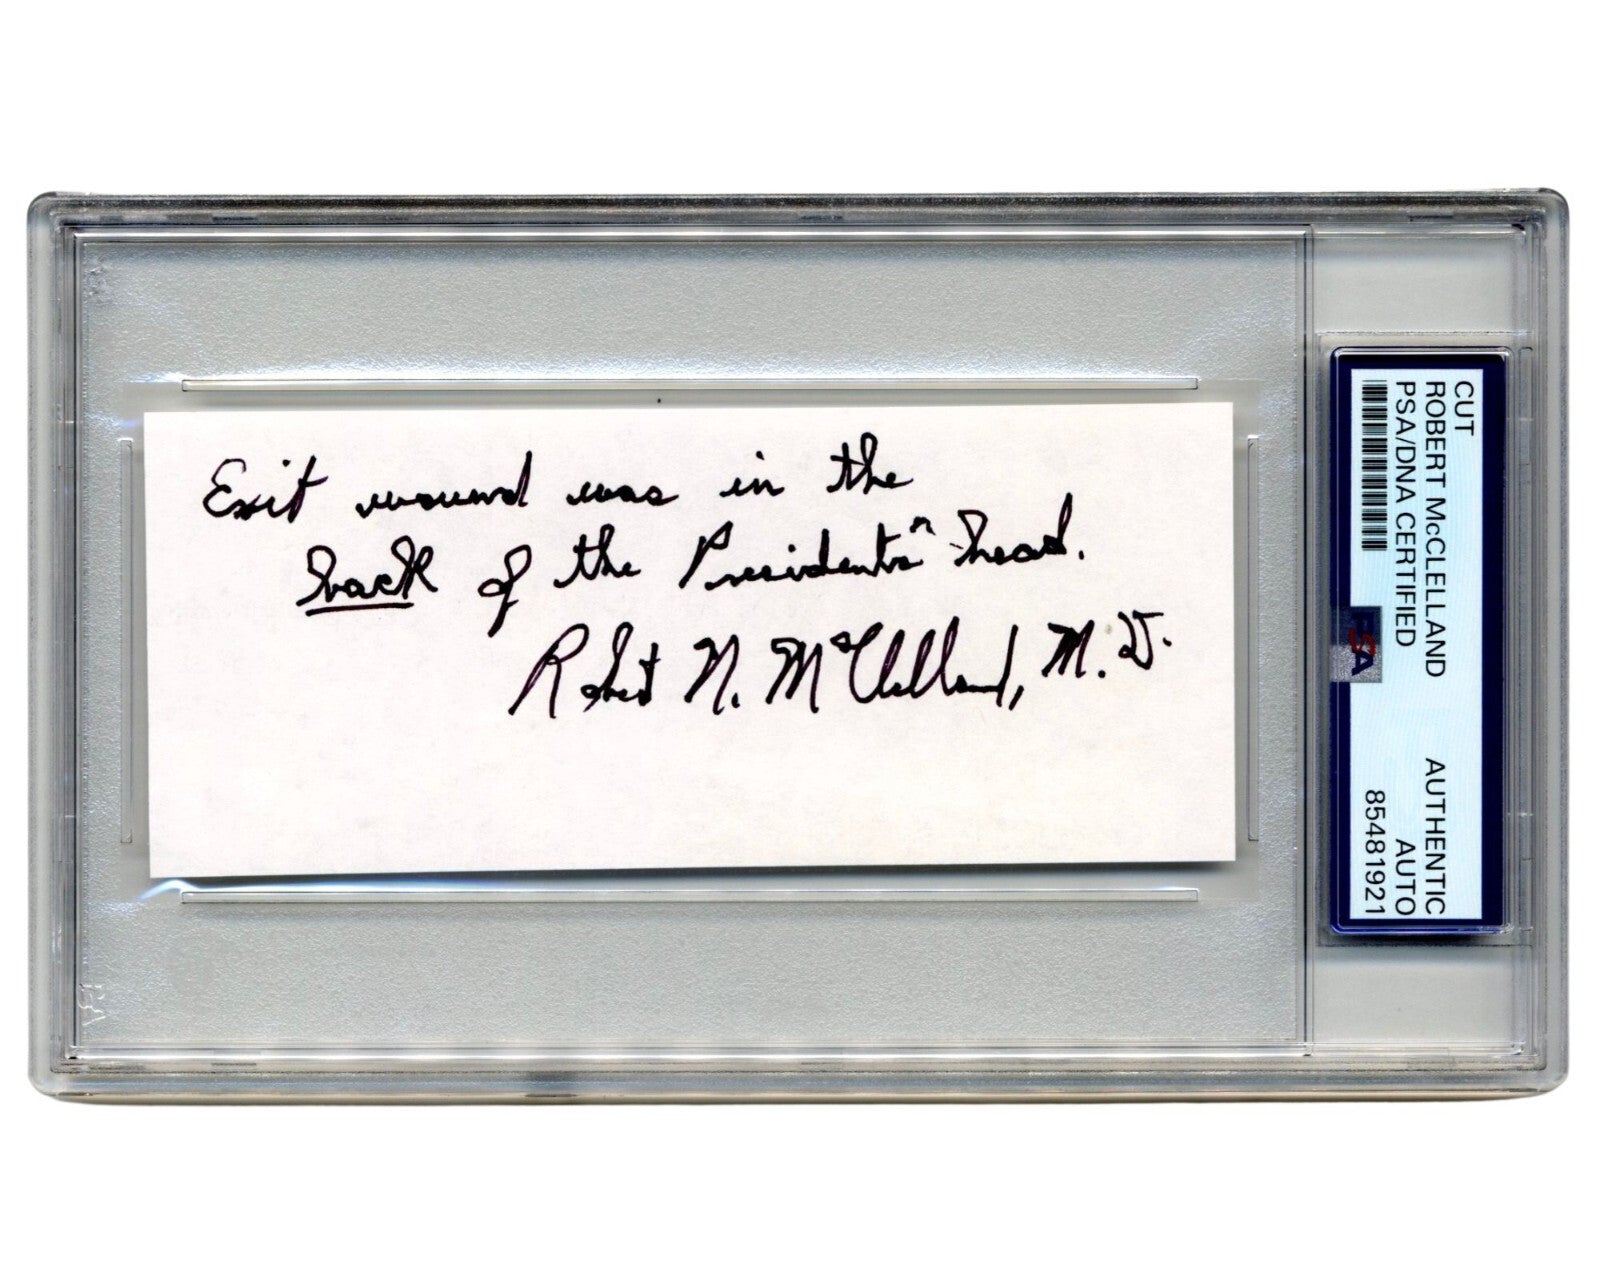 Exit wound was in the
back of the Presidents" head.
Robert N. McClelland, M.D.
CUT
ROBERT McCLELLAND
PSA/DNA CERTIFIED
AUTHENTIC
AUTO
85481921
PSA